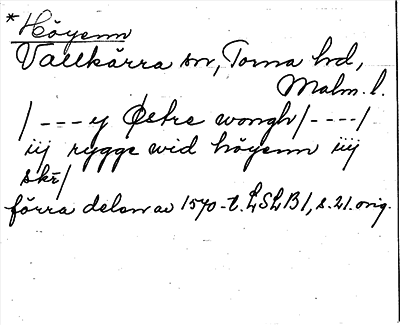 *Höyenn
Vallkärra sn, Torna hd,
Malm. l.
/---y Østre wongh/----/
iij rygge wid höyenn iiij
skr/
förra delen av 1570-t. LSLB1, s. 21. orig.